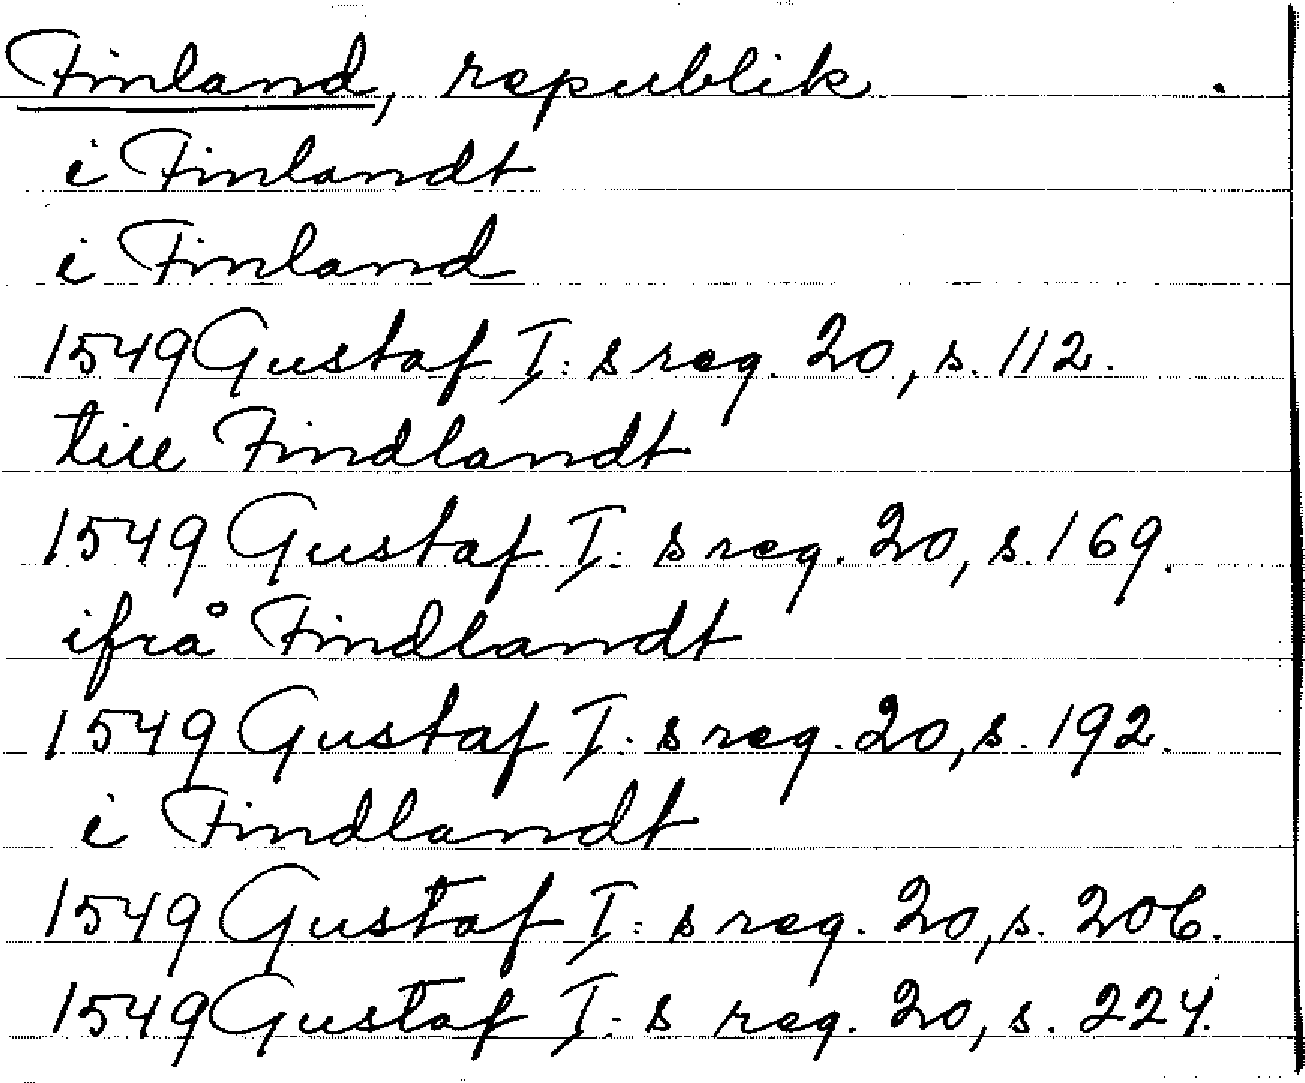 Finland, republik
i Finlandt
i Finland
1549 Gustaf I:s reg. 20, s. 112.
till Findlandt
1549 Gustaf I:s reg. 20, s. 169.
ifrå Findlandt
1549 Gustaf I:s reg. 20, s. 192.
i Findlandt
1549 Gustaf I:s reg. 20, s. 206.
1549 Gustaf I:s reg. 20, s. 224.